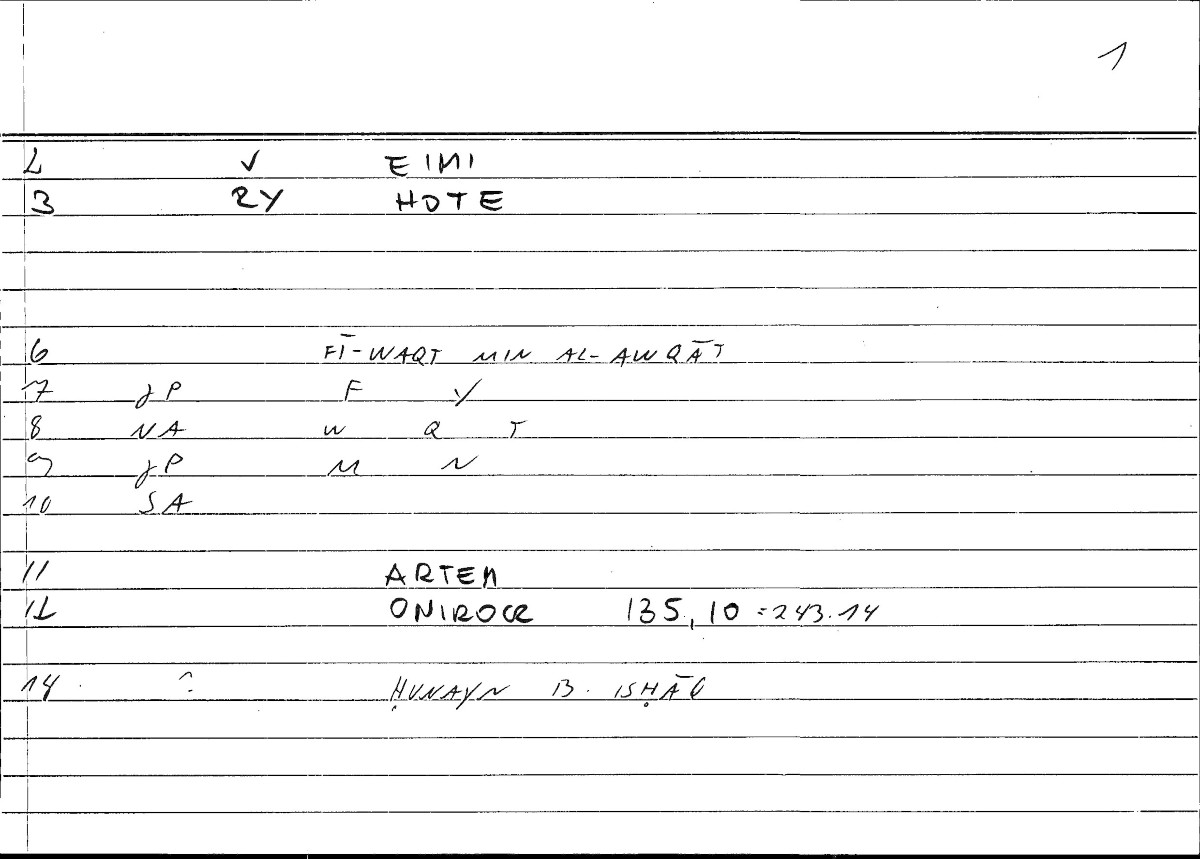 1
2 V EIMI
3 RY HOTE
6 FĪ-WAQT MIN AL-AWQĀT
7 JP F Y
8 NA W Q T
9 JP M N
10 SA
11 ARTEM
12 ONIROCR 135,10 =243.14
14 ? ḤUNAYN B. ISḤĀQ